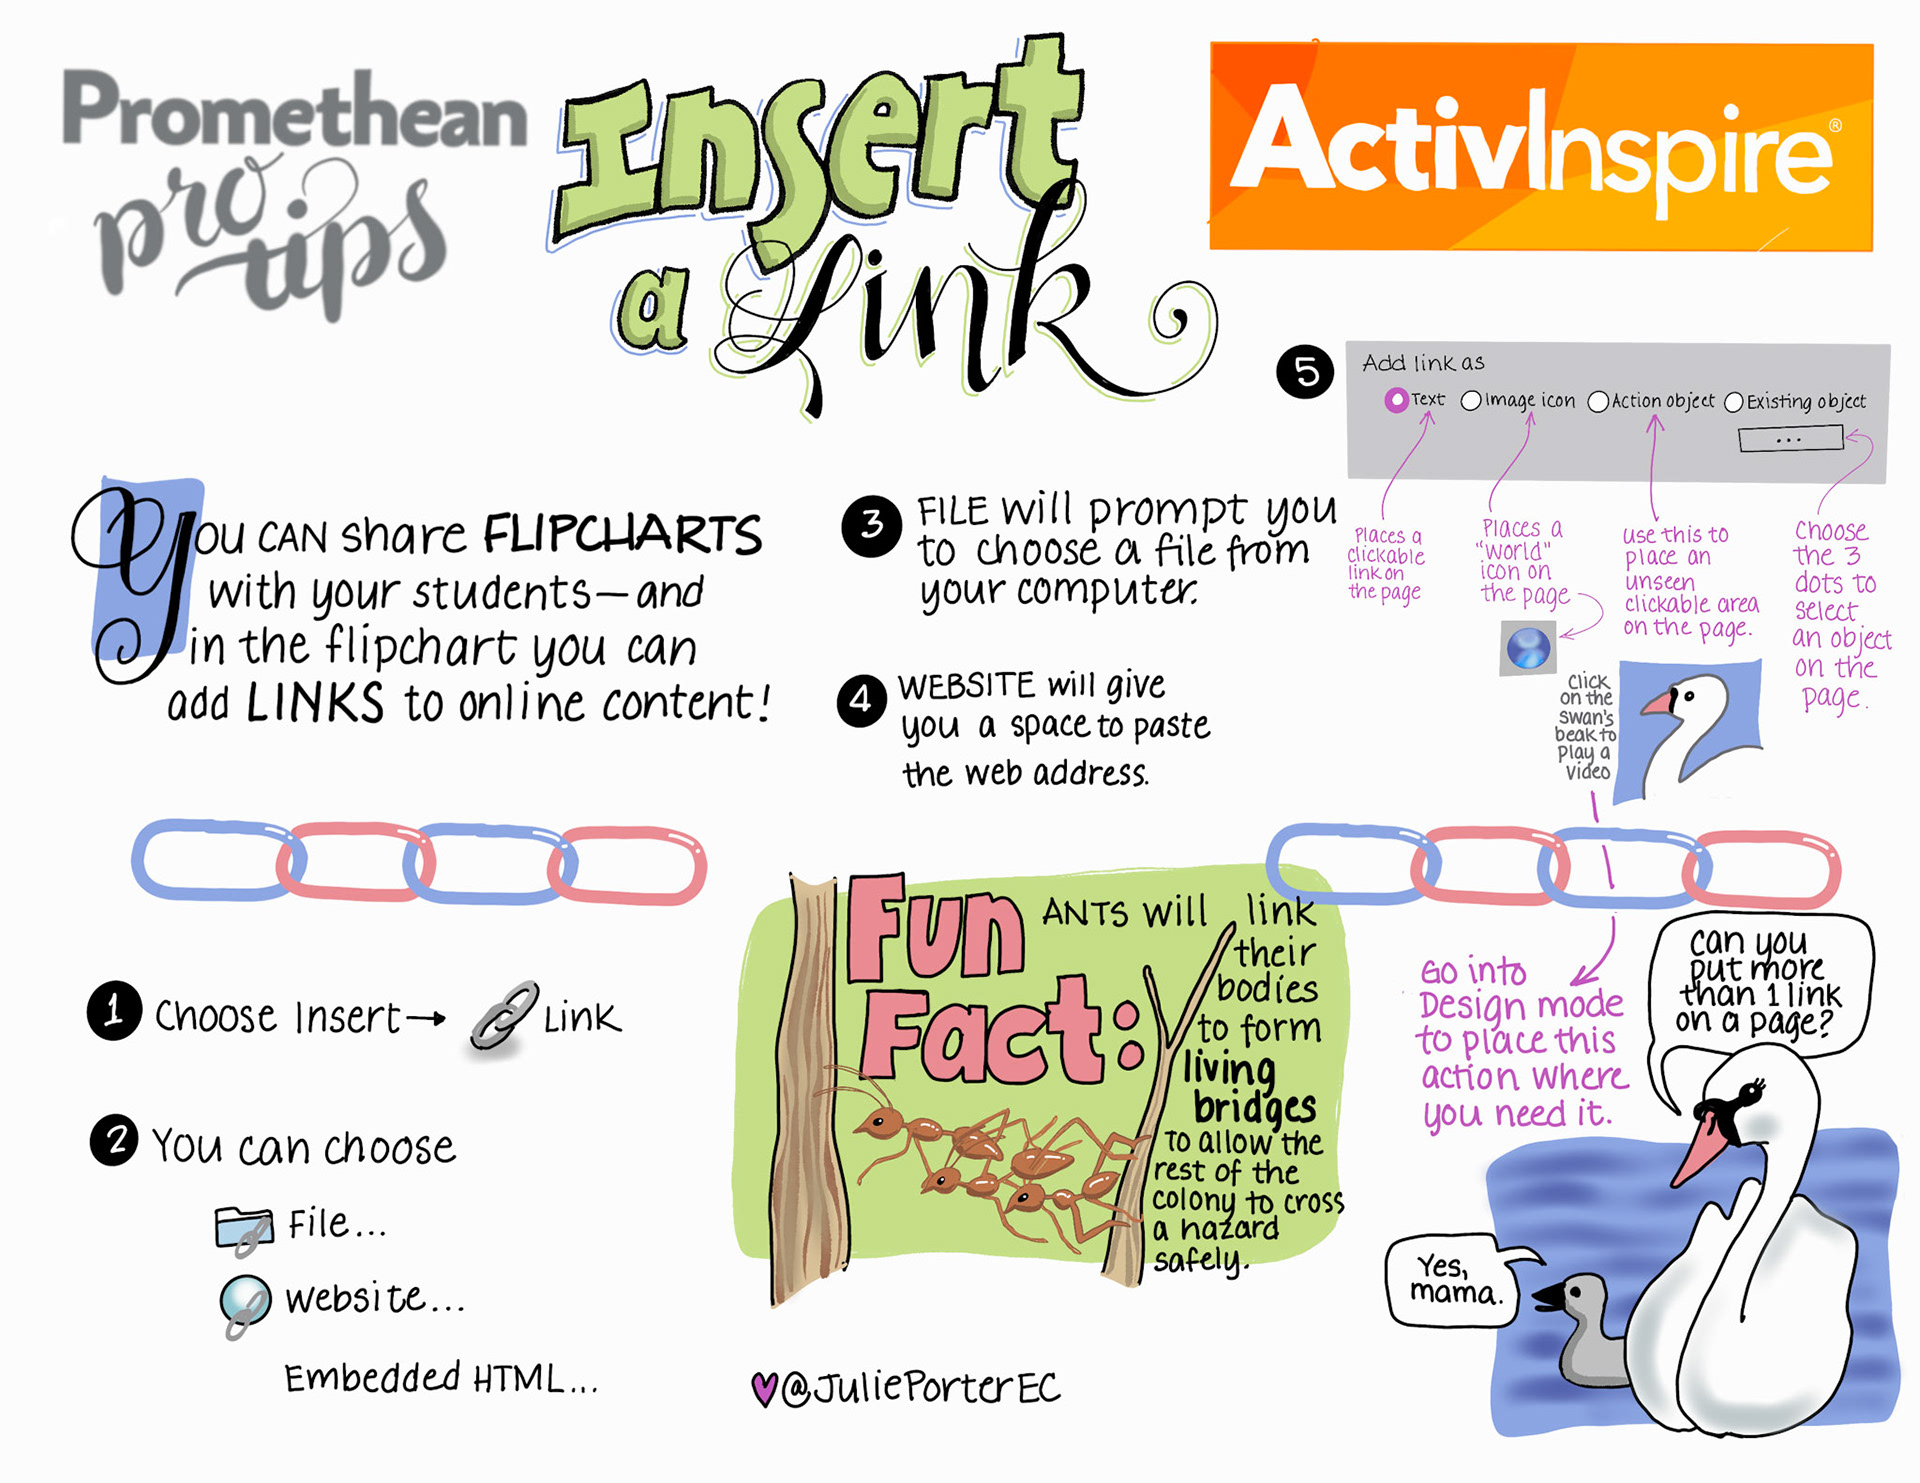 Promethean
pro
tips
Insert
a Link
ActivInspire®
You CAN share FLIPCHARTS
with your students—and
in the flipchart you can
add LINKS to online content!
1 Choose Insert→ Link
2 You can choose
File...
Website...
Embedded HTML...
3 FILE will prompt you
to choose a file from
your computer.
4 WEBSITE will give
you a space to paste
the web address.
Fun
Fact:
ANTS will link
their
bodies
to form
living
bridges
to allow the
rest of the
colony to cross
a hazard
safely.
@JuliePorterEC
5 Add link as
Text Image icon Action object Existing object
...
Places a
clickable
link on
the page
Places a
"world"
icon on
the page
use this to
place an
unseen
clickable area
on the page.
Choose
the 3
dots to
select
an object
on the
page.
Click
on the
swan's
beak to
play a
video
Go into
Design mode
to place this
action where
you need it.
Can you
put more
than 1 link
on a page?
Yes,
mama.